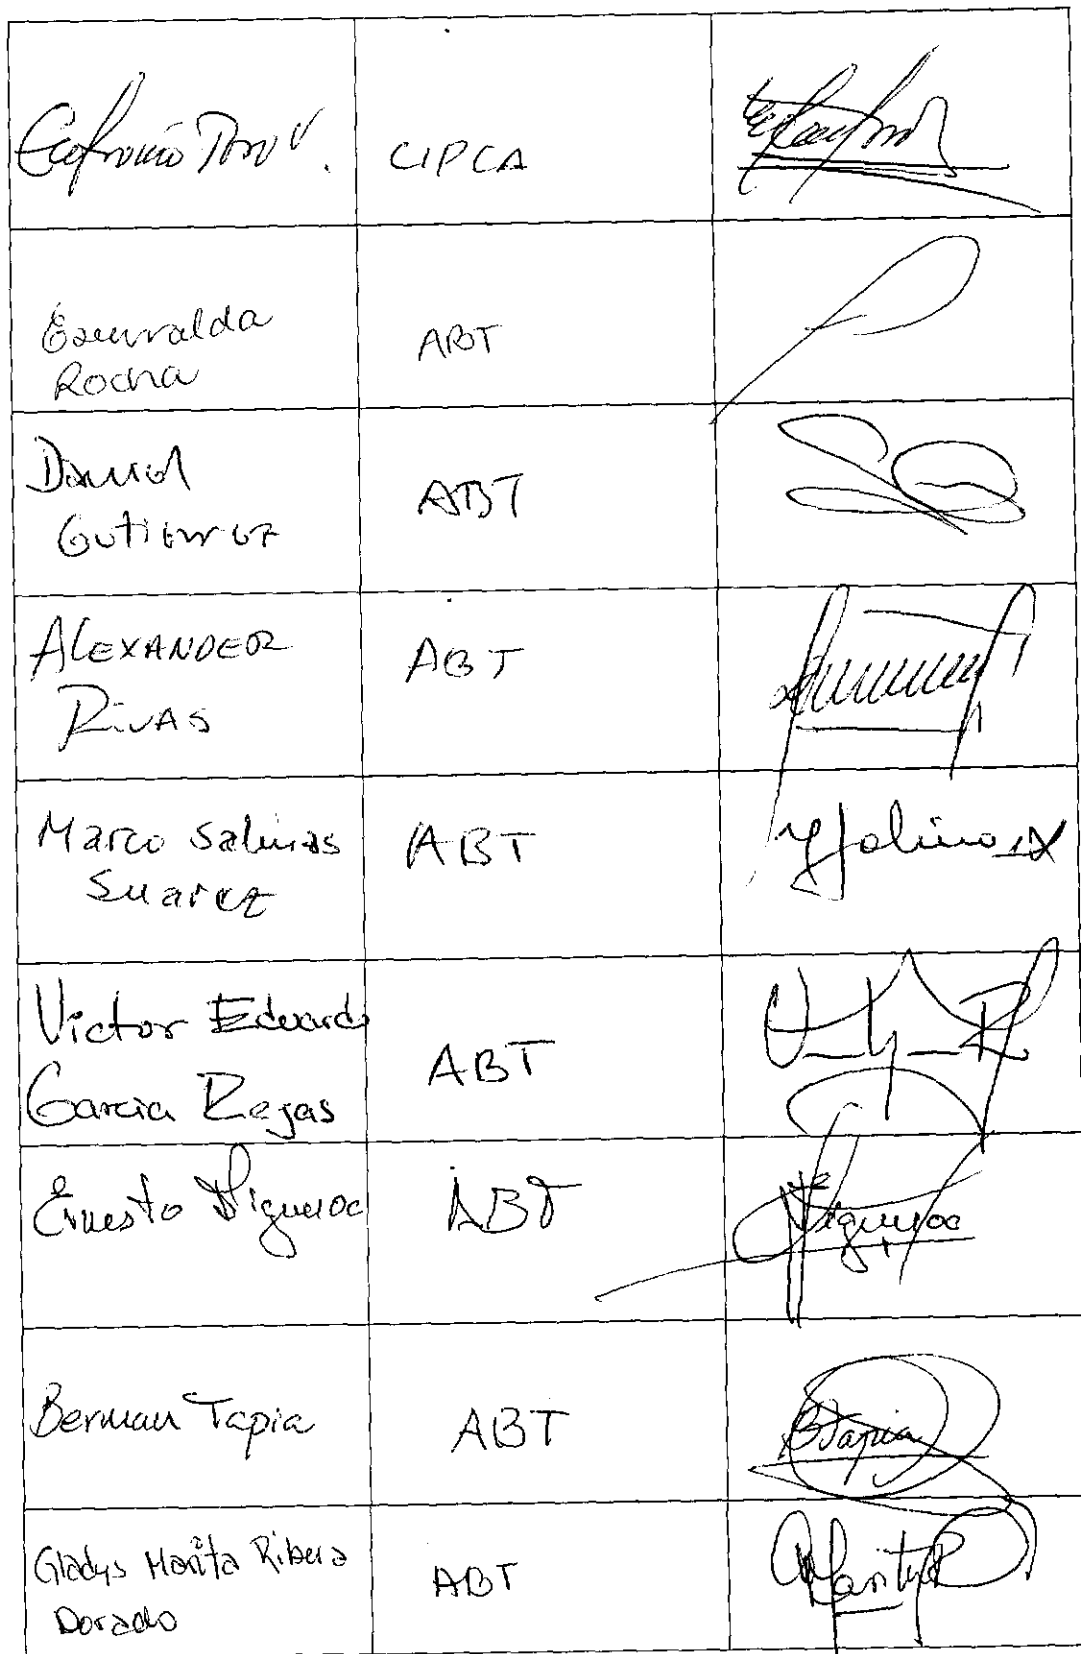 Eufronio Toro V. CIPCA
Esmeralda
Rocha ABT
Daniel
Gutierrez ABT
ALEXANDER
RIVAS ABT
Marco Salinas
Suarez ABT
Victor Eduardo
Garcia Rojas ABT
Ernesto Figueroa ABT
Figueroa
Berman Tapia ABT
BTapia
Gladys Marita Ribera
Dorado ABT